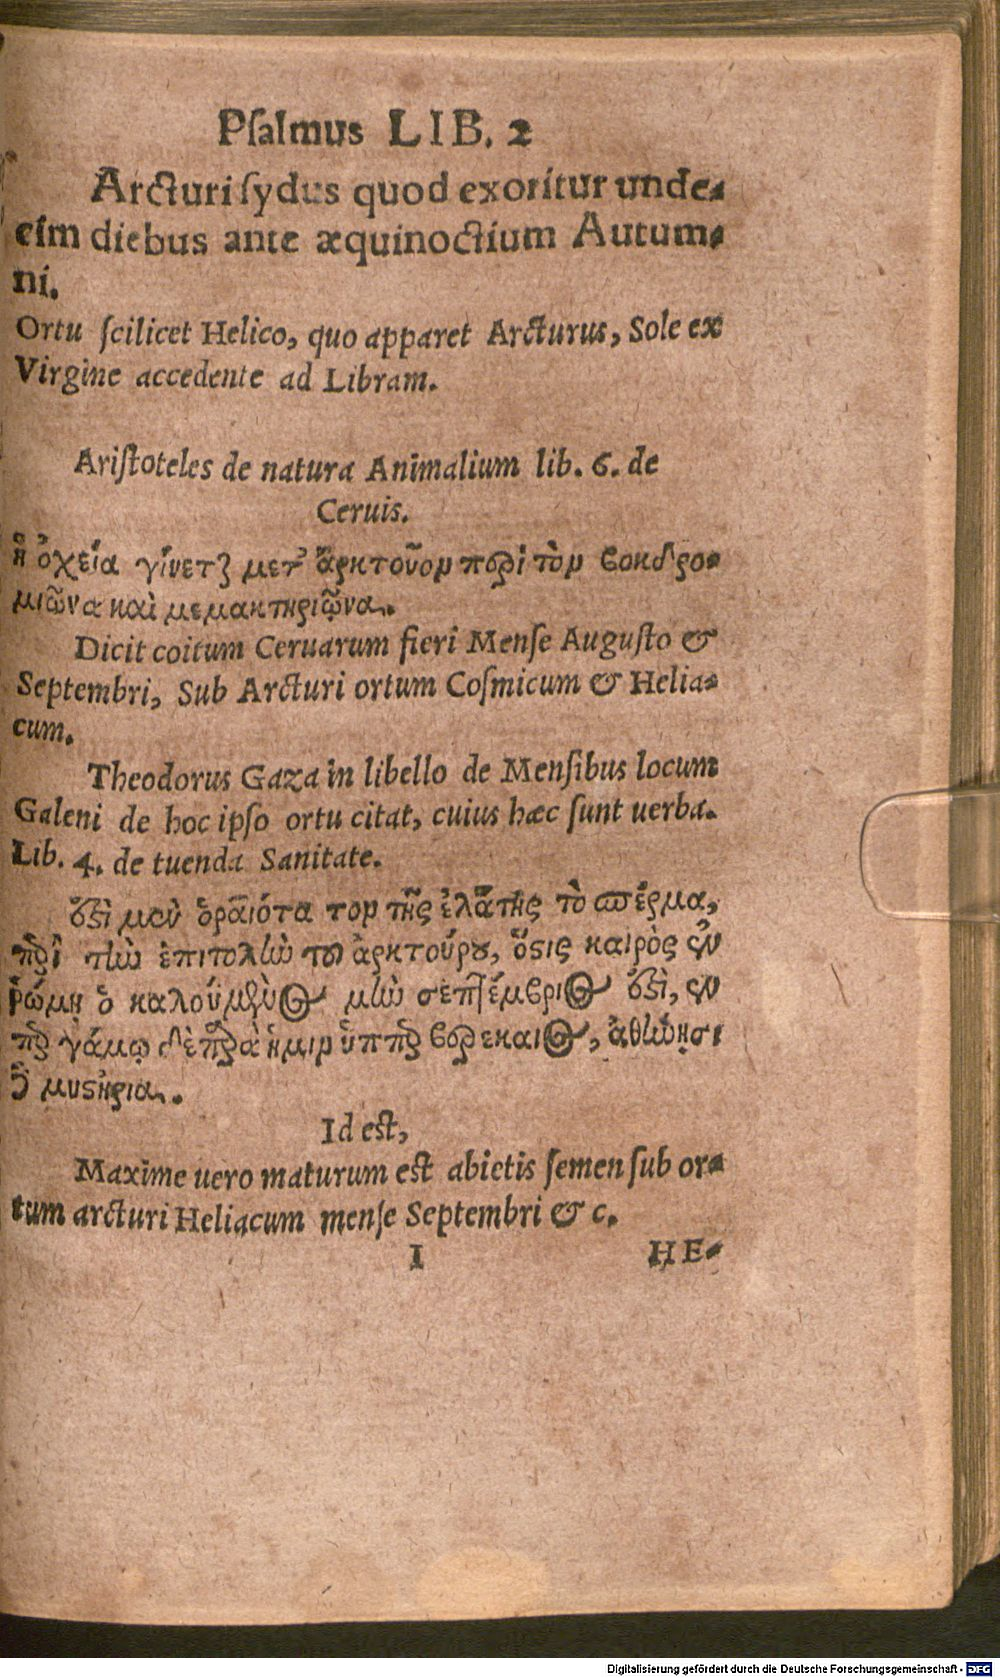 Pſalmus LIB. 2
Arcturi ſydus quod exoritur unde-
cim diebus ante æquinoctium Autum-
ni.
Ortu ſcilicet Helico, quo apparet Arcturus, Sole ex
Virgine accedente ad Libram.
Ariſtoteles de natura Animalium lib. 6. de
Ceruis.
ἡ ὀχεία γίνεται μετ' ἄρκτοῦρον περὶ τὸν βοηδρο-
μιῶνα καὶ μεμακτηριῶνα.
Dicit coitum Ceruarum fieri Menſe Auguſto &
Septembri, Sub Arcturi ortum Coſmicum & Helia-
cum.
Theodorus Gaza in libello de Menſibus locum
Galeni de hoc ipſo ortu citat, cuius hæc ſunt uerba.
Lib. 4. de tuenda Sanitate.
τῆς ἐλάτης τὸ σπέρμα,
ἐπιτολὴν τοῦ ἀρκτούρου, ὅστις καιρὸς ἐν
ῥώμῃ ὁ καλούμενος μὲν σεπτέμβριος ἐστὶ, ἐν
μυστήρια.
Id eſt,
Maxime uero maturum eſt abietis ſemen ſub or-
tum arcturi Heliacum menſe Septembri & c.
I HE-
Digitalisierung gefördert durch die Deutsche Forschungsgemeinschaft - DFG